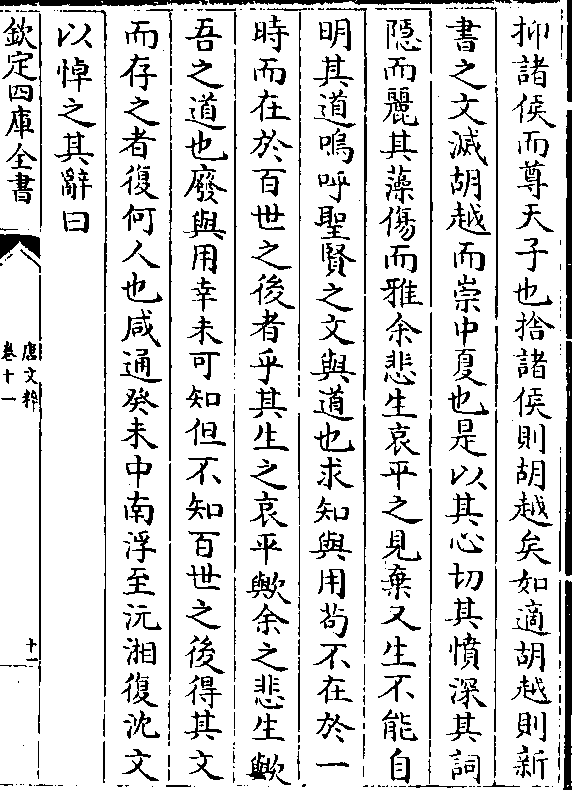 抑諸侯而尊天子也捨諸侯則胡越矣如適胡越則新
書之文滅胡越而崇中夏也是以其心切其憤深其詞
隠而麗其藻傷而雅余悲生哀平之見棄又生不能自
明其道嗚呼聖賢之文與道也求知與用苟不在於一
時而在於百世之後者乎其生之哀平歟余之悲生歟
吾之道也廢與用幸未可知但不知百世之後得其文
而存之者復何人也咸通癸未中南浮至沅湘復沈文
以悼之其辭曰
欽定四庫全書
唐文粹
卷十一
十一